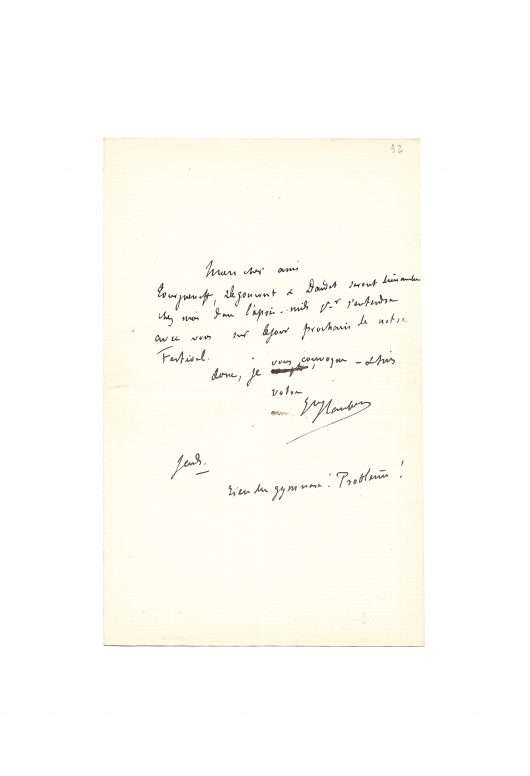 92
Mon cher ami
Tourgueneff, & Daudet seront dimanche
chez moi dans l'après-midi pr s'entendre
avec vous sur le jour prochain de notre
Festival.
donc, je vous convoque - & suis
votre
Gve Flaubert
Jeudi.
Rien du gymnase! Problème!